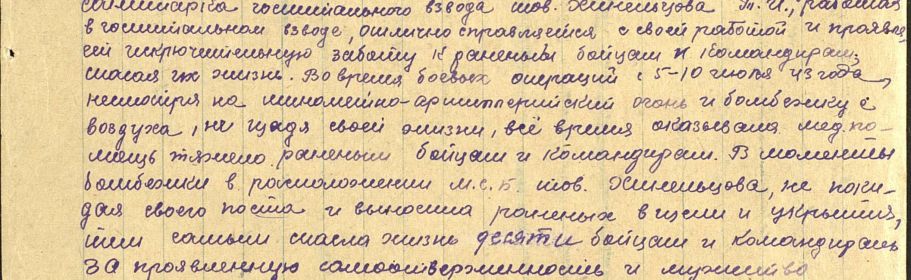 санитарка госпитального взвода тов. Хинельцова Т.И., работая
в госпитальном взводе, отлично справляется с своей работой и проявля-
ей исключительную заботу к раненым бойцам и командирам,
спасая их жизнь. Во время боевых операций с 5-10 июля 43 года,
несмотря на минометно-артиллерийский огонь и бомбежку с
воздуха, не щадя своей жизни, всё время оказывала мед. по-
мощь тяжело раненым бойцам и командирам. В моменты
бомбежки в расположении м.с.б. тов. Хинельцова, не поки-
дая своего поста и выносила раненых в щели и укрытия,
тем самым спасла жизнь десяти бойцам и командирам
За проявленную самоотверженность и мужество